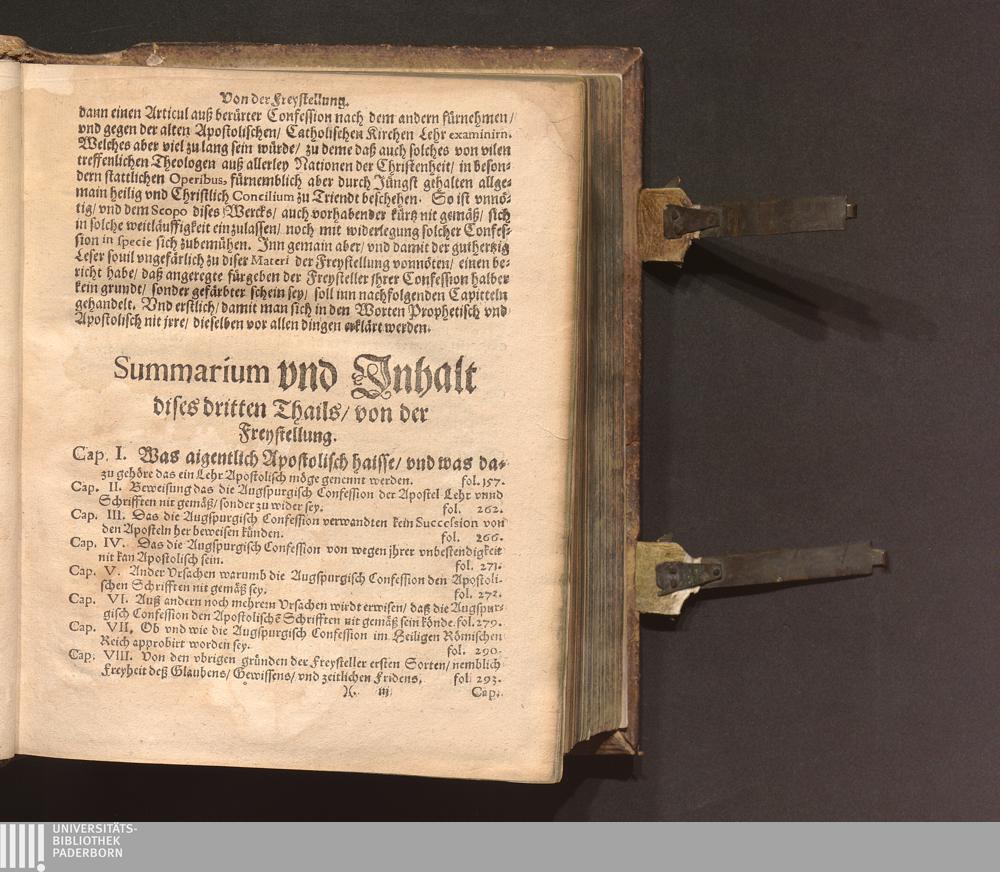 Von der Freystellung.
dann einen Articul auß berürter Confession nach dem andern fürnehmen/
vnd gegen der alten Apostolischen/ Catholischen Kirchen Lehr examinirn.
Welches aber viel zu lang sein würde/ zu deme daß auch solches von vilen
treffenlichen Theologen auß allerley Nationen der Christenheit/ in beson-
dern stattlichen Operibus, fürnemblich aber durch Jüngst gehalten allge-
main heilig vnd Christlich Concilium zu Triendt beschehen. So ist vnnö-
tig/ vnd dem Scopo dises Wercks/ auch vorhabender kürtz nit gemäß/ sich
in solche weitläuffigkeit einzulassen/ noch mit widerlegung solcher Confes-
sion in specie sich zubemühen. Jnn gemain aber/ vnd damit der guthertzig
Leser souil vngefärlich zu diser Materi der Freystellung vonnöten/ einen be-
richt habe/ daß angeregte fürgeben der Freysteller jhrer Confession halber
kein grundt/ sonder gefärbter schein sey/ soll inn nachfolgenden Capitteln
gehandelt. Vnd erstlich/ damit man sich in den Worten Prophetisch vnd
Apostolisch nit jrre/ dieselben vor allen dingen erklärt werden.
Summarium vnd Jnhalt
dises dritten Thails/ von der
Freystellung.
Cap. I. Was aigentlich Apostolisch haisse/ vnd was da-
zu gehöre das ein Lehr Apostolisch möge genennt werden. fol. 157.
Cap. II. Beweisung das die Augspurgisch Confession der Apostel Lehr vnnd
Schrifften nit gemäß/ sonder zu wider sey. fol. 262.
Cap. III. Das die Augspurgisch Confession verwandten kein Succession von
den Aposteln her beweisen künden. fol. 266.
Cap. IV. Das die Augspurgisch Confession von wegen jhrer vnbestendigkeit
nit kan Apostolisch sein. fol. 271.
Cap. V. Ander Vrsachen warumb die Augspurgisch Confession den Apostoli-
schen Schrifften nit gemäß sey. fol. 272.
Cap. VI. Auß andern noch mehrern Vrsachen wirdt erwisen/ daß die Augspur-
gisch Confession den Apostolischē Schrifften nit gemäß sein könde. fol. 279.
Cap. VII. Ob vnd wie die Augspurgisch Confession im Heiligen Römischen
Reich approbirt worden sey. fol. 290.
Cap. VIII. Von den vbrigen gründen der Freysteller ersten Sorten/ nemblich
Freyheit deß Glaubens/ Gewissens/ vnd zeitlichen Fridens. fol. 293.
iij Cap.
UNIVERSITÄTS-
BIBLIOTHEK
PADERBORN